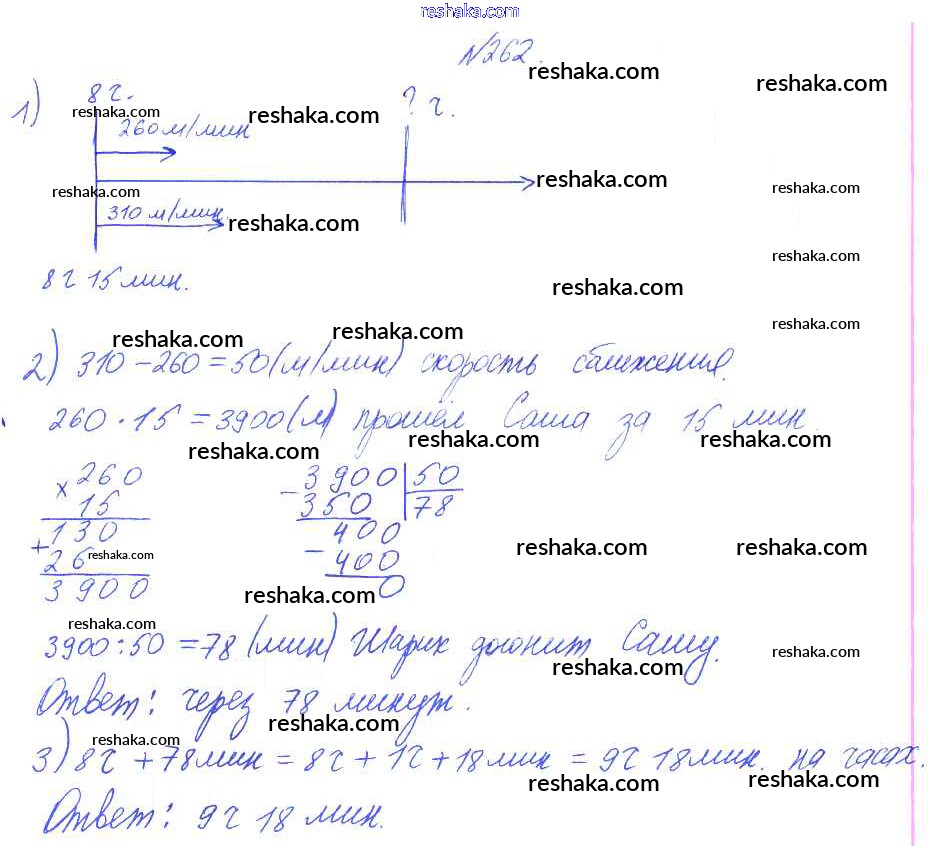 reshaka.com
№262.
reshaka.com
reshaka.com
1)
8 ч.
? ч.
reshaka.com
reshaka.com
260 м/мин
reshaka.com
reshaka.com
reshaka.com
310 м/мин.
reshaka.com
reshaka.com
8 ч 15 мин.
reshaka.com
reshaka.com
reshaka.com
reshaka.com
2) 310 - 260 = 50 (м/мин) скорость сближения.
260 · 15 = 3900 (м) прошёл Саша за 15 мин.
reshaka.com
reshaka.com
reshaka.com
× 260
15
130
+ 26
reshaka.com
3900
- 3900 50
350 78
400
- 400
0
reshaka.com
reshaka.com
reshaka.com
reshaka.com
3900 : 50 = 78 (мин) Шарик догонит Сашу.
reshaka.com
reshaka.com
Ответ: через 78 минут.
reshaka.com
reshaka.com
3) 8 ч + 78 мин = 8 ч + 1 ч + 18 мин = 9 ч 18 мин. на часах.
reshaka.com
reshaka.com
Ответ: 9 ч 18 мин.